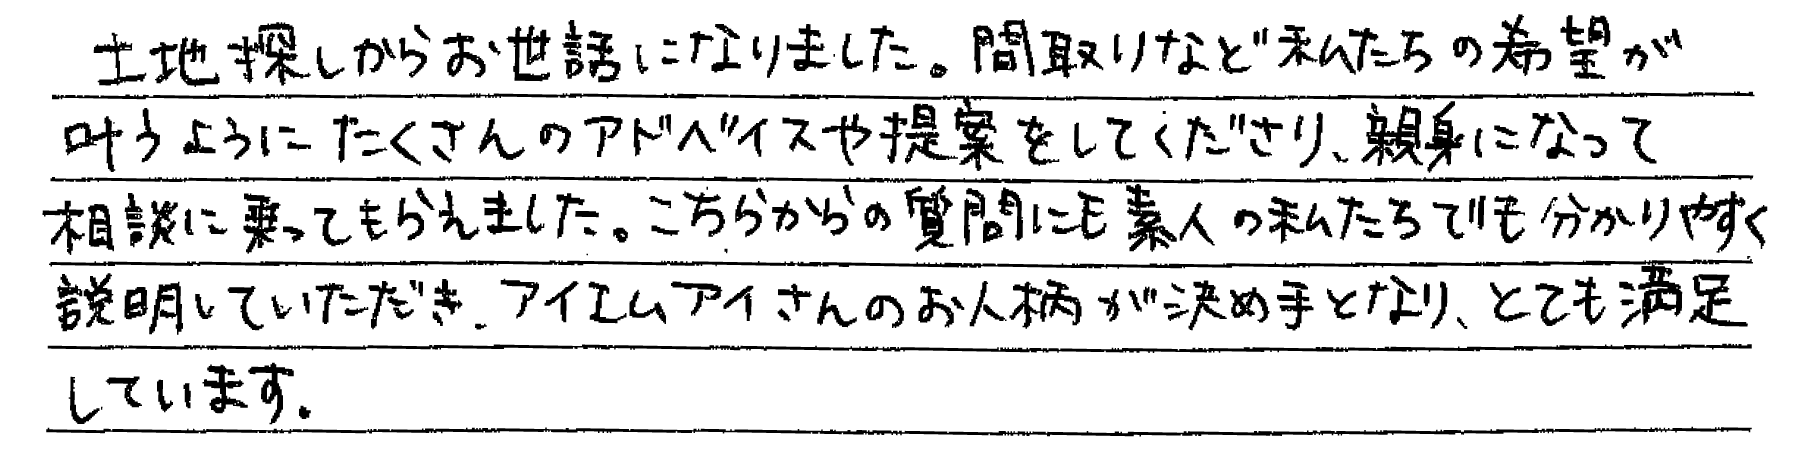 土地探しからお世話になりました。間取りなど私たちの希望が
叶うようにたくさんのアドベイスや提案をしてくださり、親身になって
相談に乗ってもらえました。こちらからの質問にも素人の私たちでも分かりやすく
説明していただき、アイエムアイさんのお人柄が決め手となり、とても満足
しています。